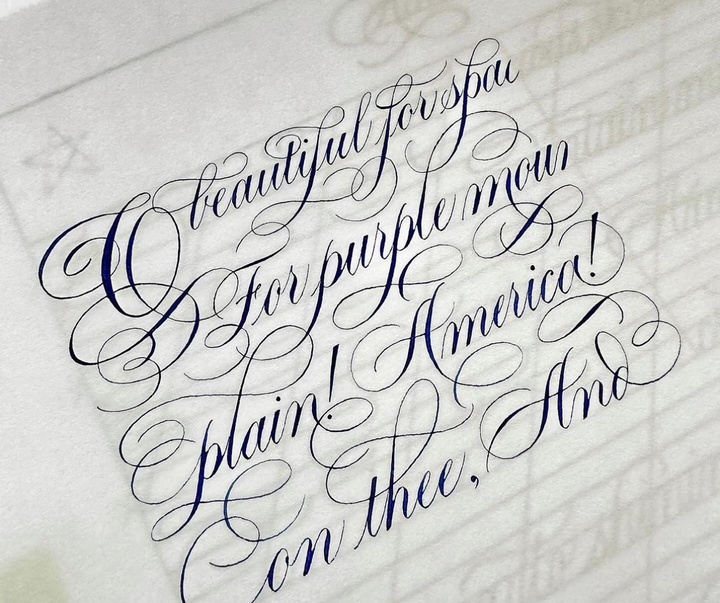 O beautiful for spac
For purple moun
plain! America!
on thee, And